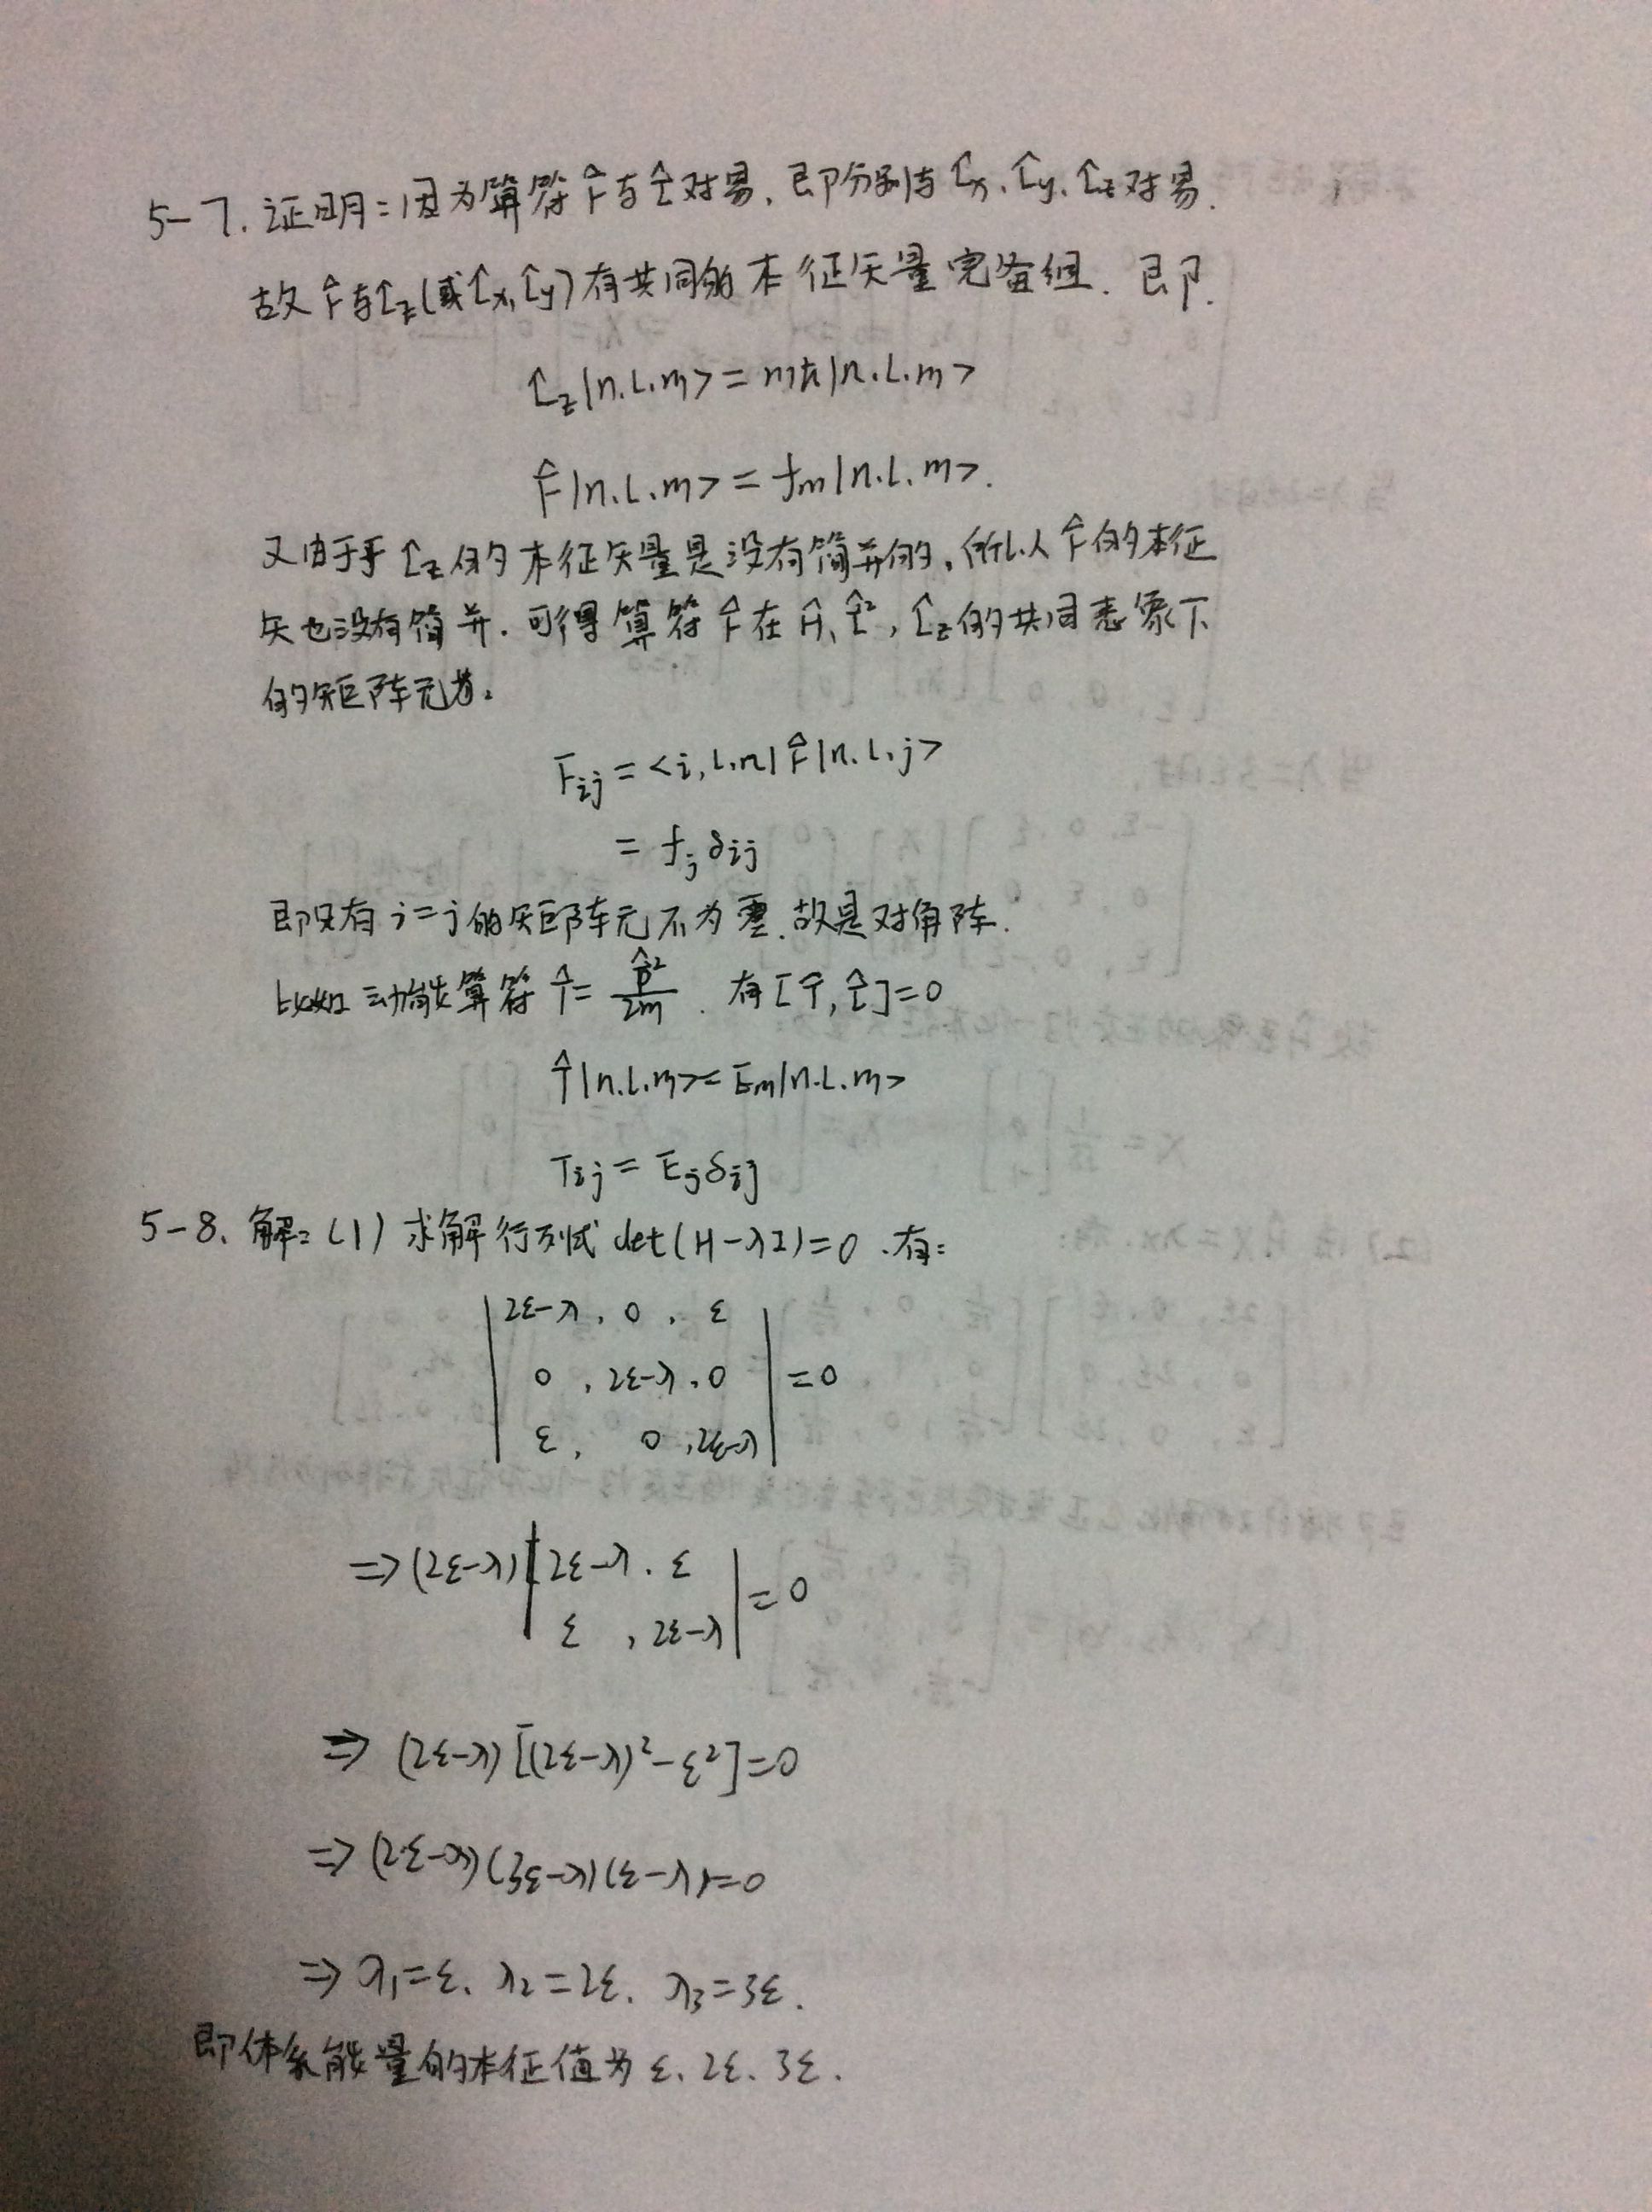 5-7. 证明:因为算符F̂与L̂对易,即分别与L̂x、L̂y、L̂z对易.
故F̂与L̂z(或L̂x,L̂y)有共同的本征矢量完备组. 即.
L̂z|n.l.m>=mħ|n.l.m>
F̂|n.l.m>=fm|n.l.m>.
又由于于L̂z的本征矢量是没有简并的,所以F̂的本征
矢也没有简并.可得算符F̂在Ĥ、L̂²,L̂z的共同表象下
的矩阵元为:
Fij=<i,l.n|F̂|n.l.j>
=fjδij
即只有i=j的矩阵元不为零.故是对角阵.
比如动能算符T̂=p̂²/2m. 有[T̂,L̂]=0
T̂|n.l.m>=Em|n.l.m>
Tij=Ejδij
5-8、解:(1)求解行列式det(H-λI)=0.有:
|2ε-λ, 0, ε|
|0, 2ε-λ, 0|=0
|ε, 0, 2ε-λ|
⇒(2ε-λ)|2ε-λ. ε|=0
|ε, 2ε-λ|
⇒(2ε-λ)[(2ε-λ)²-ε²]=0
⇒(2ε-λ)(3ε-λ)(ε-λ)=0
⇒λ1=ε、λ2=2ε、λ3=3ε.
即体系能量的本征值为ε、2ε、3ε.